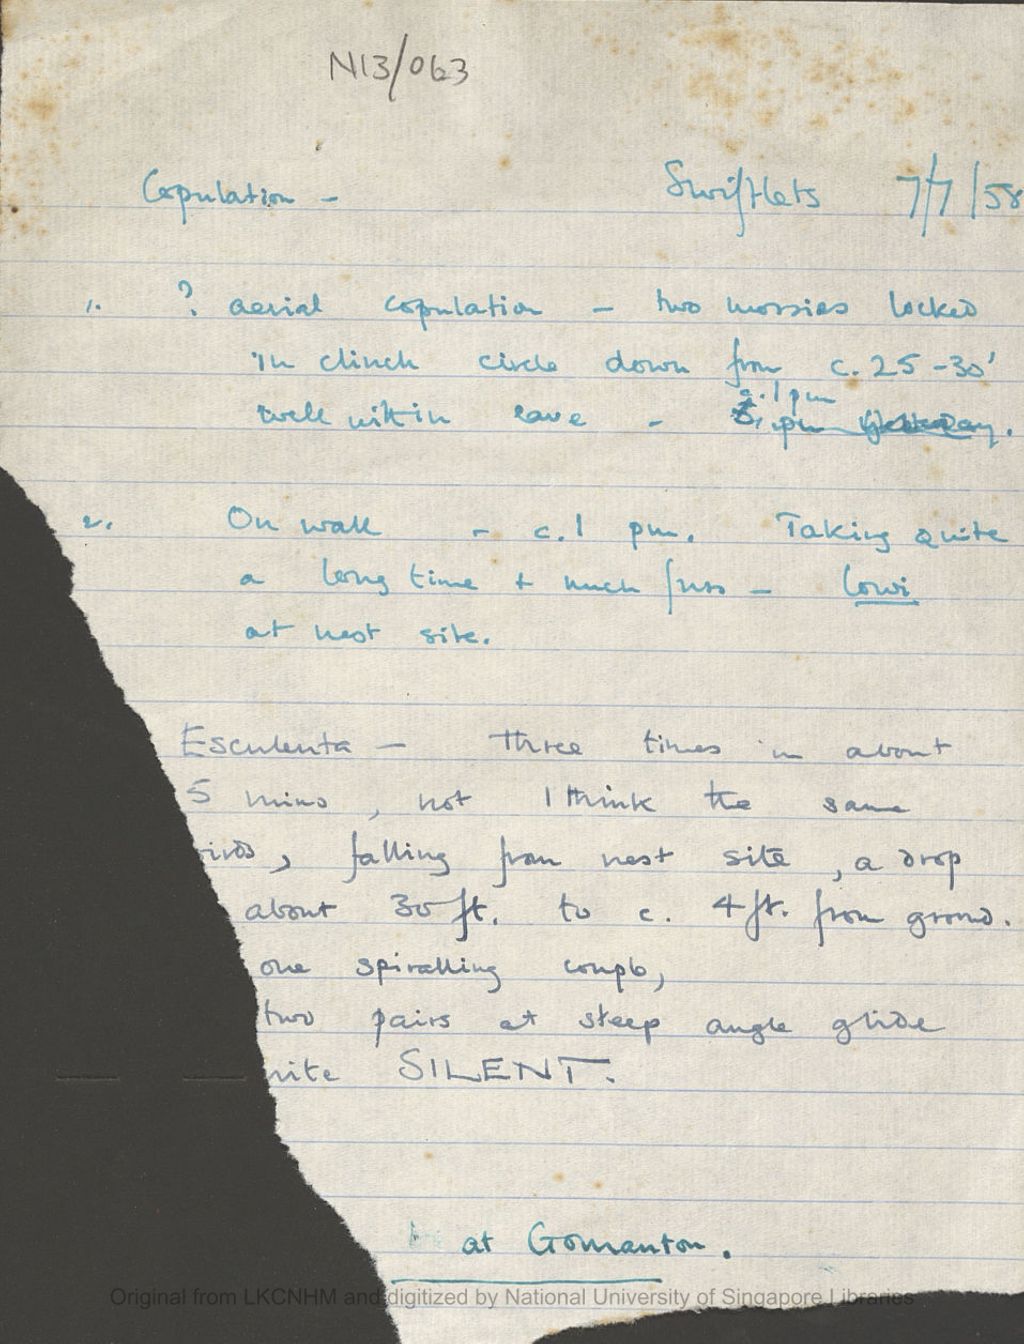 N13/063
Copulation - Swiftlets 7/7/58
1. ? aerial copulation - two mossies locked
in clinch circle down from c. 25-30'
c. 1 pm
well within cave - pm
2. On wall - c. 1 pm. Taking quite
a long time + much fuss - lowi
at nest site.
Esculenta - Three times in about
5 mins, not I think the same
birds, falling from nest site, a drop
about 30 ft. to c. 4 ft. from ground.
one spiralling couple,
two pairs at steep angle glide
nite SILENT.
at Gomanton.
Original from LKCNHM and digitized by National University of Singapore Libraries